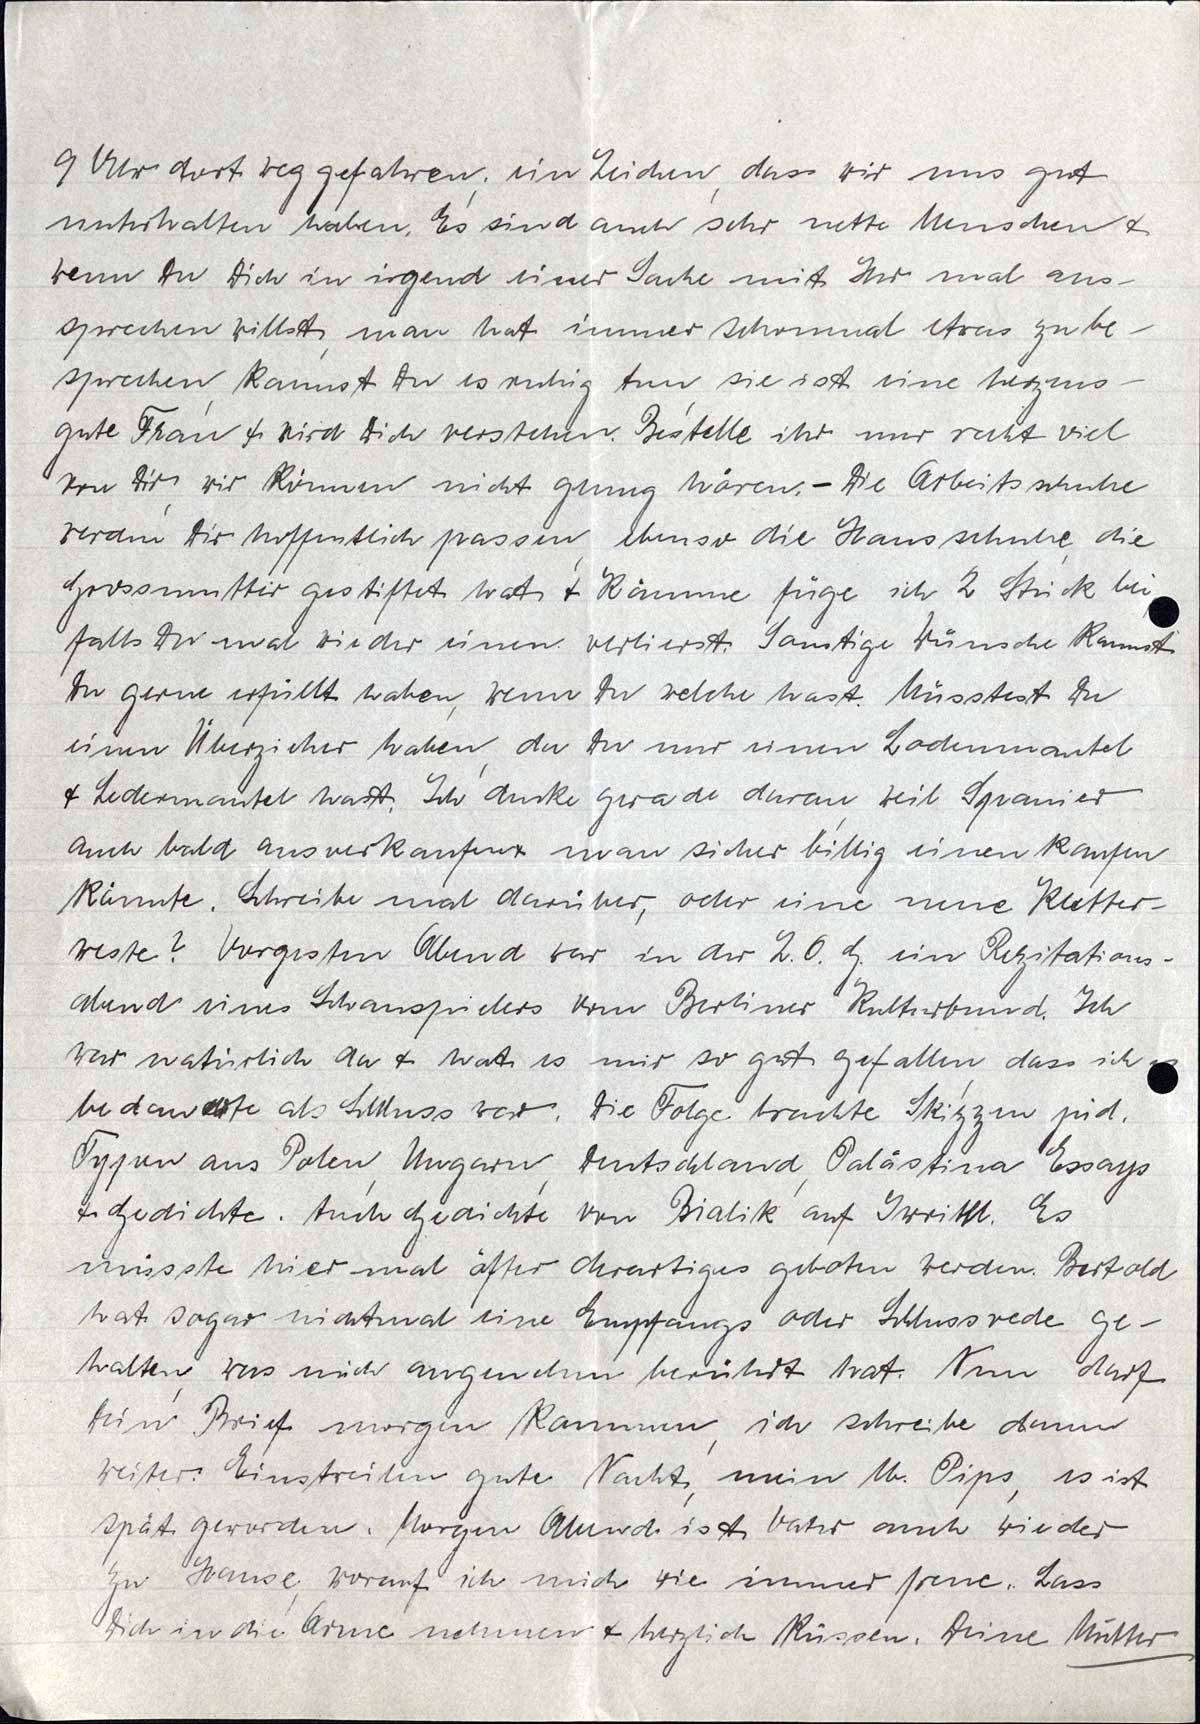 9 Uhr dort weggefahren, ein Zeichen, dass wir uns gut
unterhalten haben. Es sind auch sehr nette Menschen &
wenn Du Dich in irgend einer Sache mit Ihr mal aus-
sprechen willst, man hat immer schonmal etwas zu be-
sprechen, kannst Du es ruhig tun, sie ist eine herzens-
gute Frau & wird Dich verstehen. Bestelle ihr nur recht viel
von Dir, wir können nicht genug hören. – Die Arbeitsschuhe
werden Dir hoffentlich passen, ebenso die Hausschuhe, die
Grossmutter gestiftet hat & Kämme füge ich 2 Stück bei,
falls Du mal wieder einen verlierst. Sonstige Wünsche kannst
Du gerne erfüllt haben, wenn Du welche hast. Müsstest Du
einen Überzieher haben, da Du nur einen Lodenmantel
& Ledermantel hast. Ich denke gerade daran, weil Spanier
auch bald ausverkaufen & man sicher billig einen kaufen
könnte. Schreibe mal darüber, oder eine neue Kletter-
weste? Vorgestern Abend war in der Z.O.G. ein Rezitations-
abend eines Schauspielers vom Berliner Kulturbund. Ich
war natürlich da & hat es mir so gut gefallen dass ich es
bedauerte als Schluss war. Die Folge brachte Skizzen jüd.
Typen aus Polen, Ungarn, Deutschland, Palästina Essays
& Gedichte. Auch Gedichte von Bialik auf Iwrith. Es
müsste hier mal öfter derartiges geboten werden. Bertold
hat sogar nichtmal eine Empfangs oder Schlussrede ge-
halten, was mich angenehm berührt hat. Nun darf
Dein Brief morgen kommen, ich schreibe dann
weiter. Einstweilen gute Nacht, mein lb. Pips, es ist
spät geworden. Morgen Abend ist Vater auch wieder
zu Hause, worauf ich mich wie immer freue. Lass
Dich in die Arme nehmen & herzlich küssen. Deine Mutter